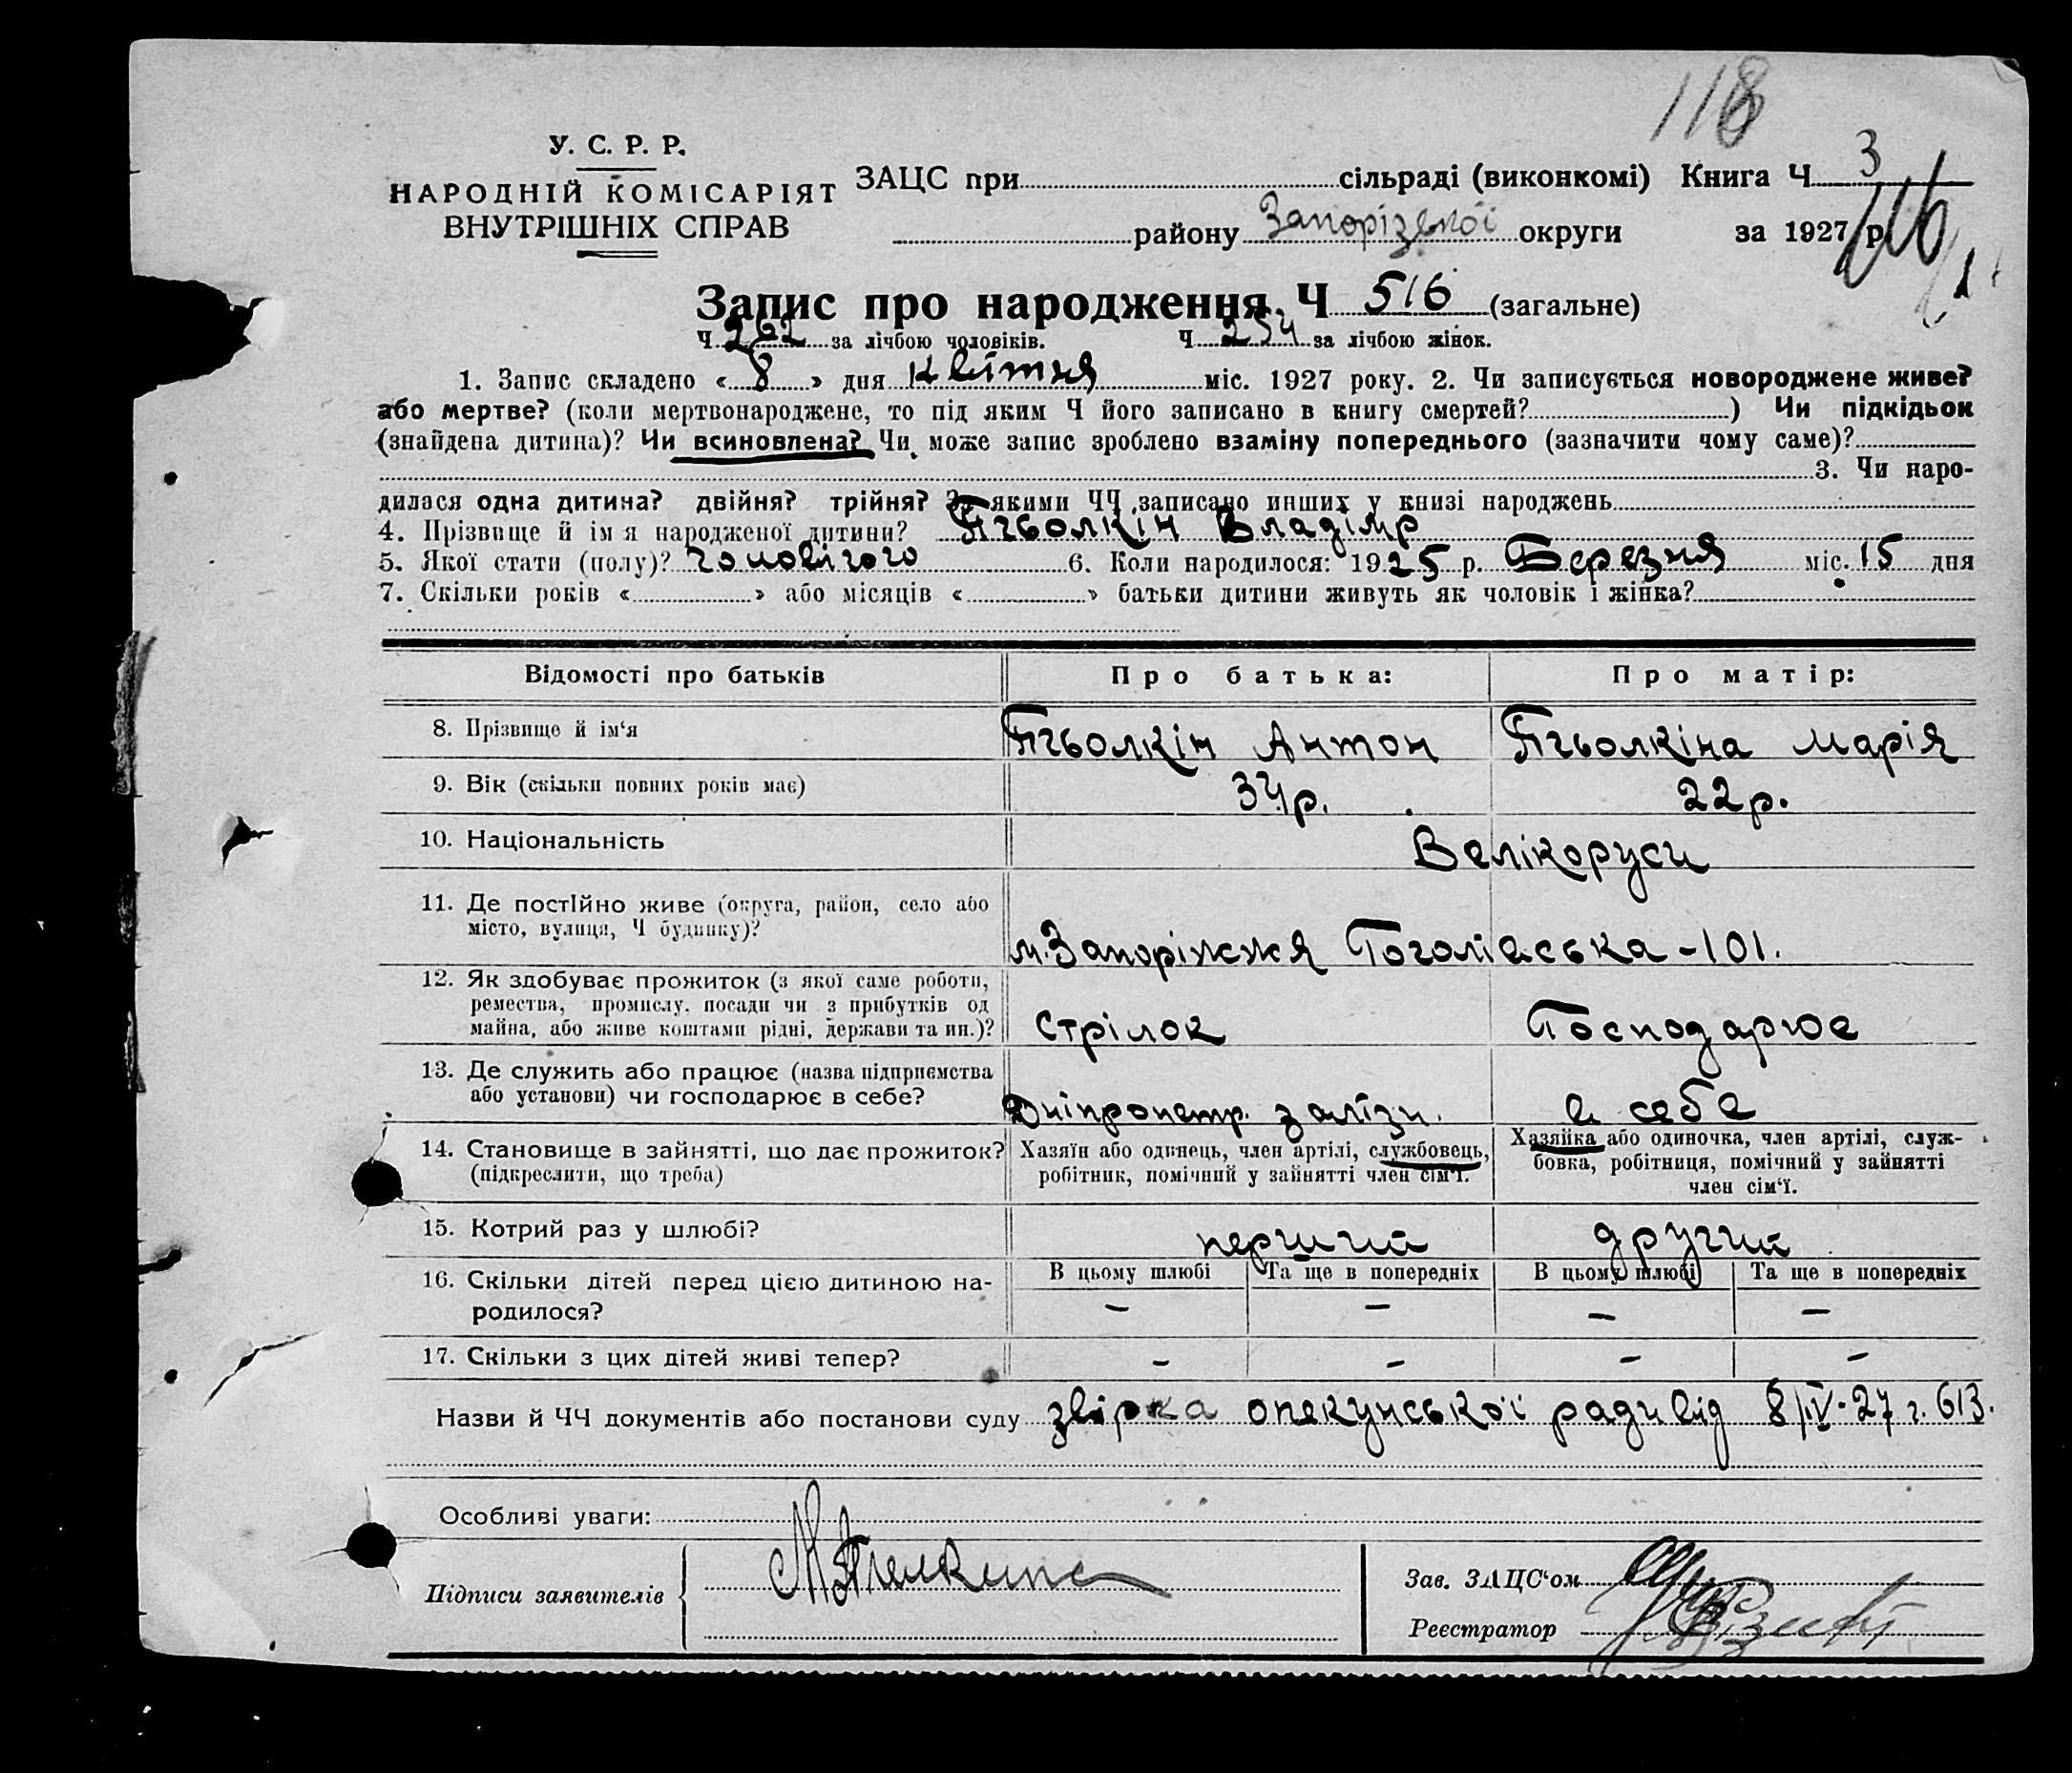 118
У. С. Р. Р.
НАРОДНІЙ КОМІСАРІЯТ
ВНУТРІШНІХ СПРАВ
ЗАЦС при сільраді (виконкомі) Книга Ч 3
району Запорізької округи за 1927 р.
Запис про народження Ч 516 (загальне)
Ч 262 за лічбою чоловіків. Ч 254 за лічбою жінок.
1. Запис складено « 8 » дня квітня міс. 1927 року. 2. Чи записується новороджене живе?
або мертве? (коли мертвонароджене, то під яким Ч його записано в книгу смертей? ) Чи підкідьок
(знайдена дитина)? Чи всиновлена? Чи може запис зроблено взаміну попереднього (зазначити чому саме)?
3. Чи наро-
дилася одна дитина? двійня? трійня? З якими ЧЧ записано инших у книзі народжень
4. Прізвище й ім я народженої дитини? Пчьолкін Владімр
5. Якої стати (полу)? чоловічого 6. Коли народилося: 1925 р. Березня міс. 15 дня
7. Скільки років « » або місяців « » батьки дитини живуть як чоловік і жінка?
Відомості про батьків Про батька: Про матір:
8. Прізвище й ім‘я Пчьолкін Антон Пчьолкіна Марія
9. Вік (скільки повних років має) 34 р. 22 р.
10. Національність Велікоруси
11. Де постійно живе (округа, район, село або
місто, вулиця, Ч будинку)? м. Запоріжжя Гоголівська - 101.
12. Як здобуває прожиток (з якої саме роботи,
ремества, промислу, посади чи з прибутків од
майна, або живе коштами рідні, держави та ин.)? Стрілок Господарює
13. Де служить або працює (назва підприємства
або установи) чи господарює в себе? Дніпропетр. залізн. в себе
14. Становище в зайнятті, що дає прожиток?
(підкреслити, що треба)
Хазяїн або одинець, член артілі, службовець,
робітник, помічний у зайнятті член сім‘ї.
Хазяйка або одиночка, член артілі, служ-
бовка, робітниця, помічний у зайнятті
член сім‘ї.
15. Котрий раз у шлюбі? перший другий
16. Скільки дітей перед цією дитиною на-
родилося?
В цьому шлюбі Та ще в попередніх В цьому шлюбі Та ще в попередніх
– – – –
17. Скільки з цих дітей живі тепер? – – – –
Назви й ЧЧ документів або постанови суду звірка опекунської ради від 8/IV-27 г. 613.
Особливі уваги:
Підписи заявителів М Пчелкина
Зав. ЗАЦС‘ом
Реєстратор